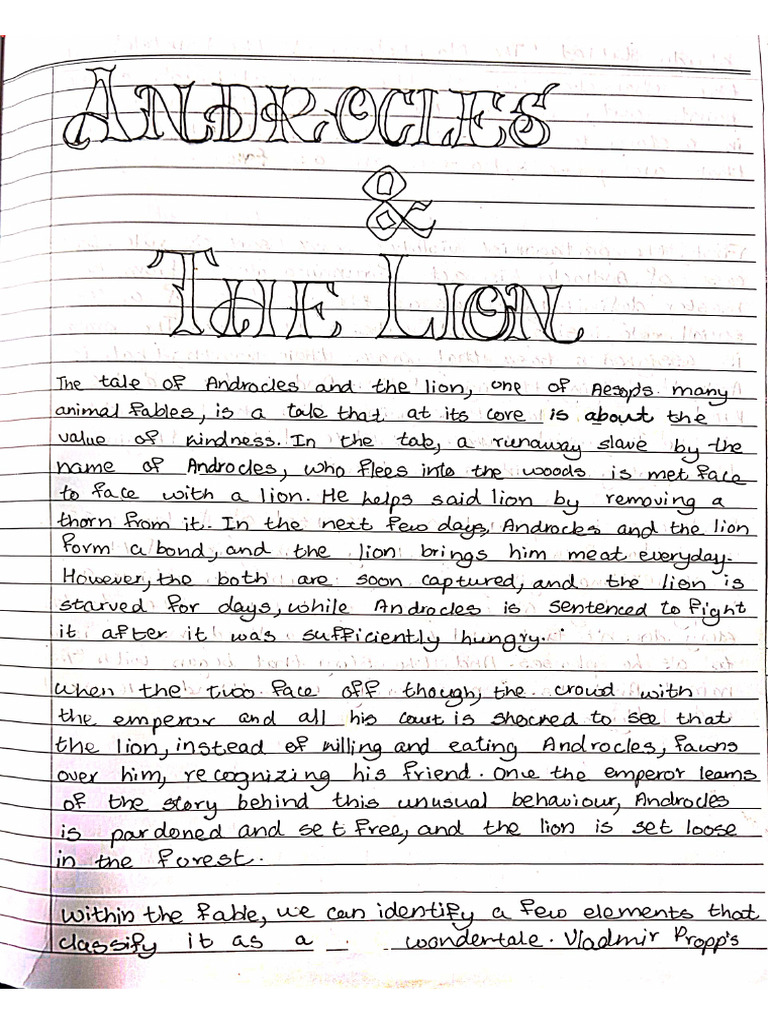 ANDROCLES
&
THE LION
The tale of Androcles and the lion, one of Aesop's many
animal fables, is a tale that at its core is about the
value of kindness. In the tale, a runaway slave by the
name of Androcles, who flees into the woods is met face
to face with a lion. He helps said lion by removing a
thorn from it. In the next few days, Androcles and the lion
form a bond, and the lion brings him meat everyday.
However, the both are soon captured, and the lion is
starved for days, while Androcles is sentenced to fight
it after it was sufficiently hungry.
When the two face off though, the crowd with
the emperor and all his court is shocked to see that
the lion, instead of killing and eating Androcles, fawns
over him, recognizing his friend. Once the emperor learns
of the story behind this unusual behaviour, Androcles
is pardoned and set free, and the lion is set loose
in the forest.
Within the fable, we can identify a few elements that
classify it as a wondertale. Vladmir Propp's